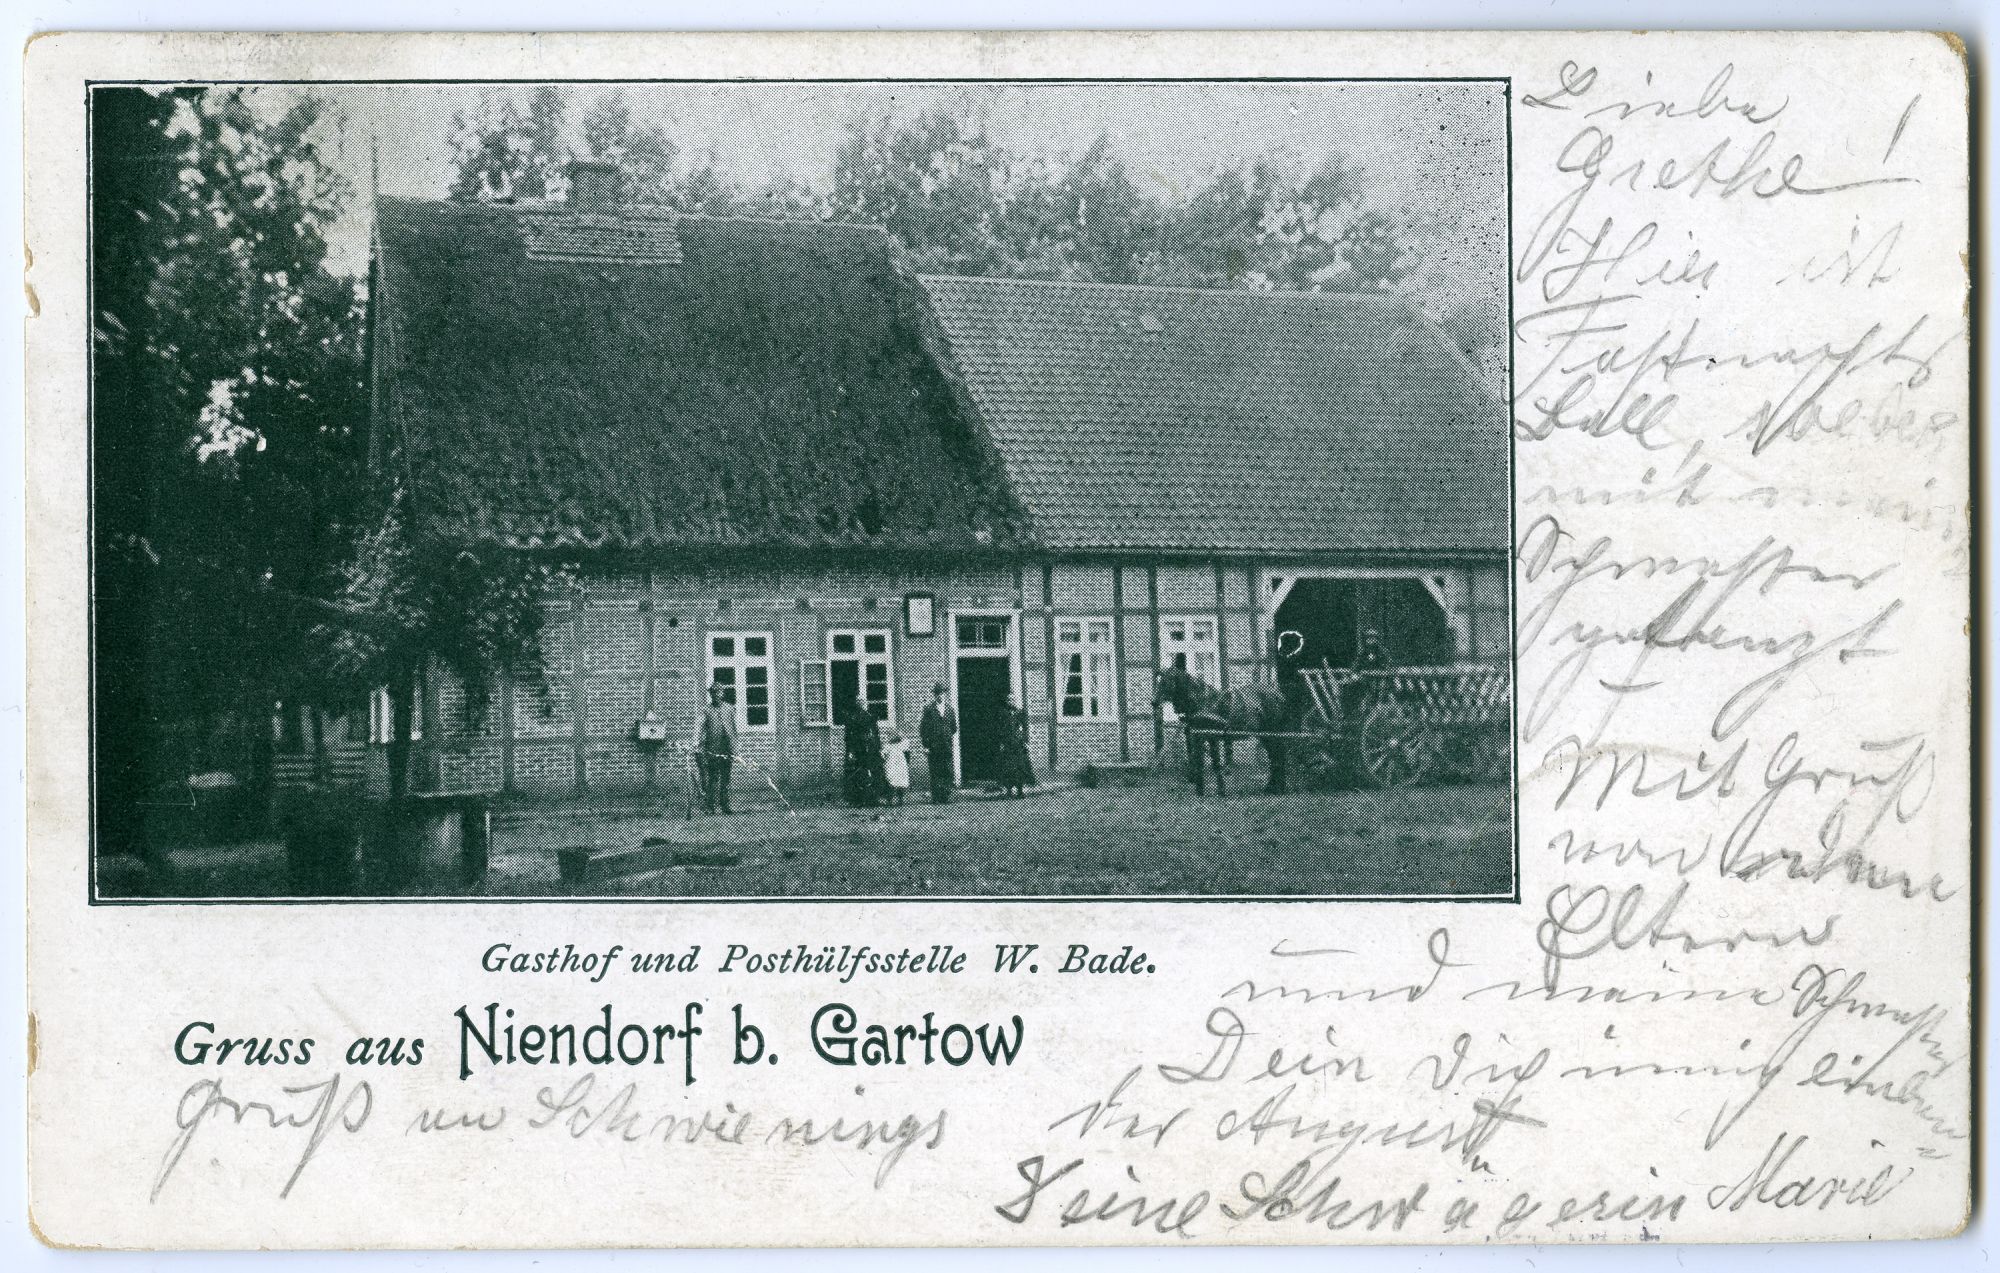 Liebe
Grethe!
Hier ist
Fastnachts
Ball, soeben
mit meiner
Schwester
getanzt
Mit Gruß
von
Eltern
und meine Schwester
Dein Dich innig
der August
Deine Schwägerin Marie
Gasthof und Posthülfsstelle W. Bade.
Gruss aus Niendorf b. Gartow
Gruß an Schwienings